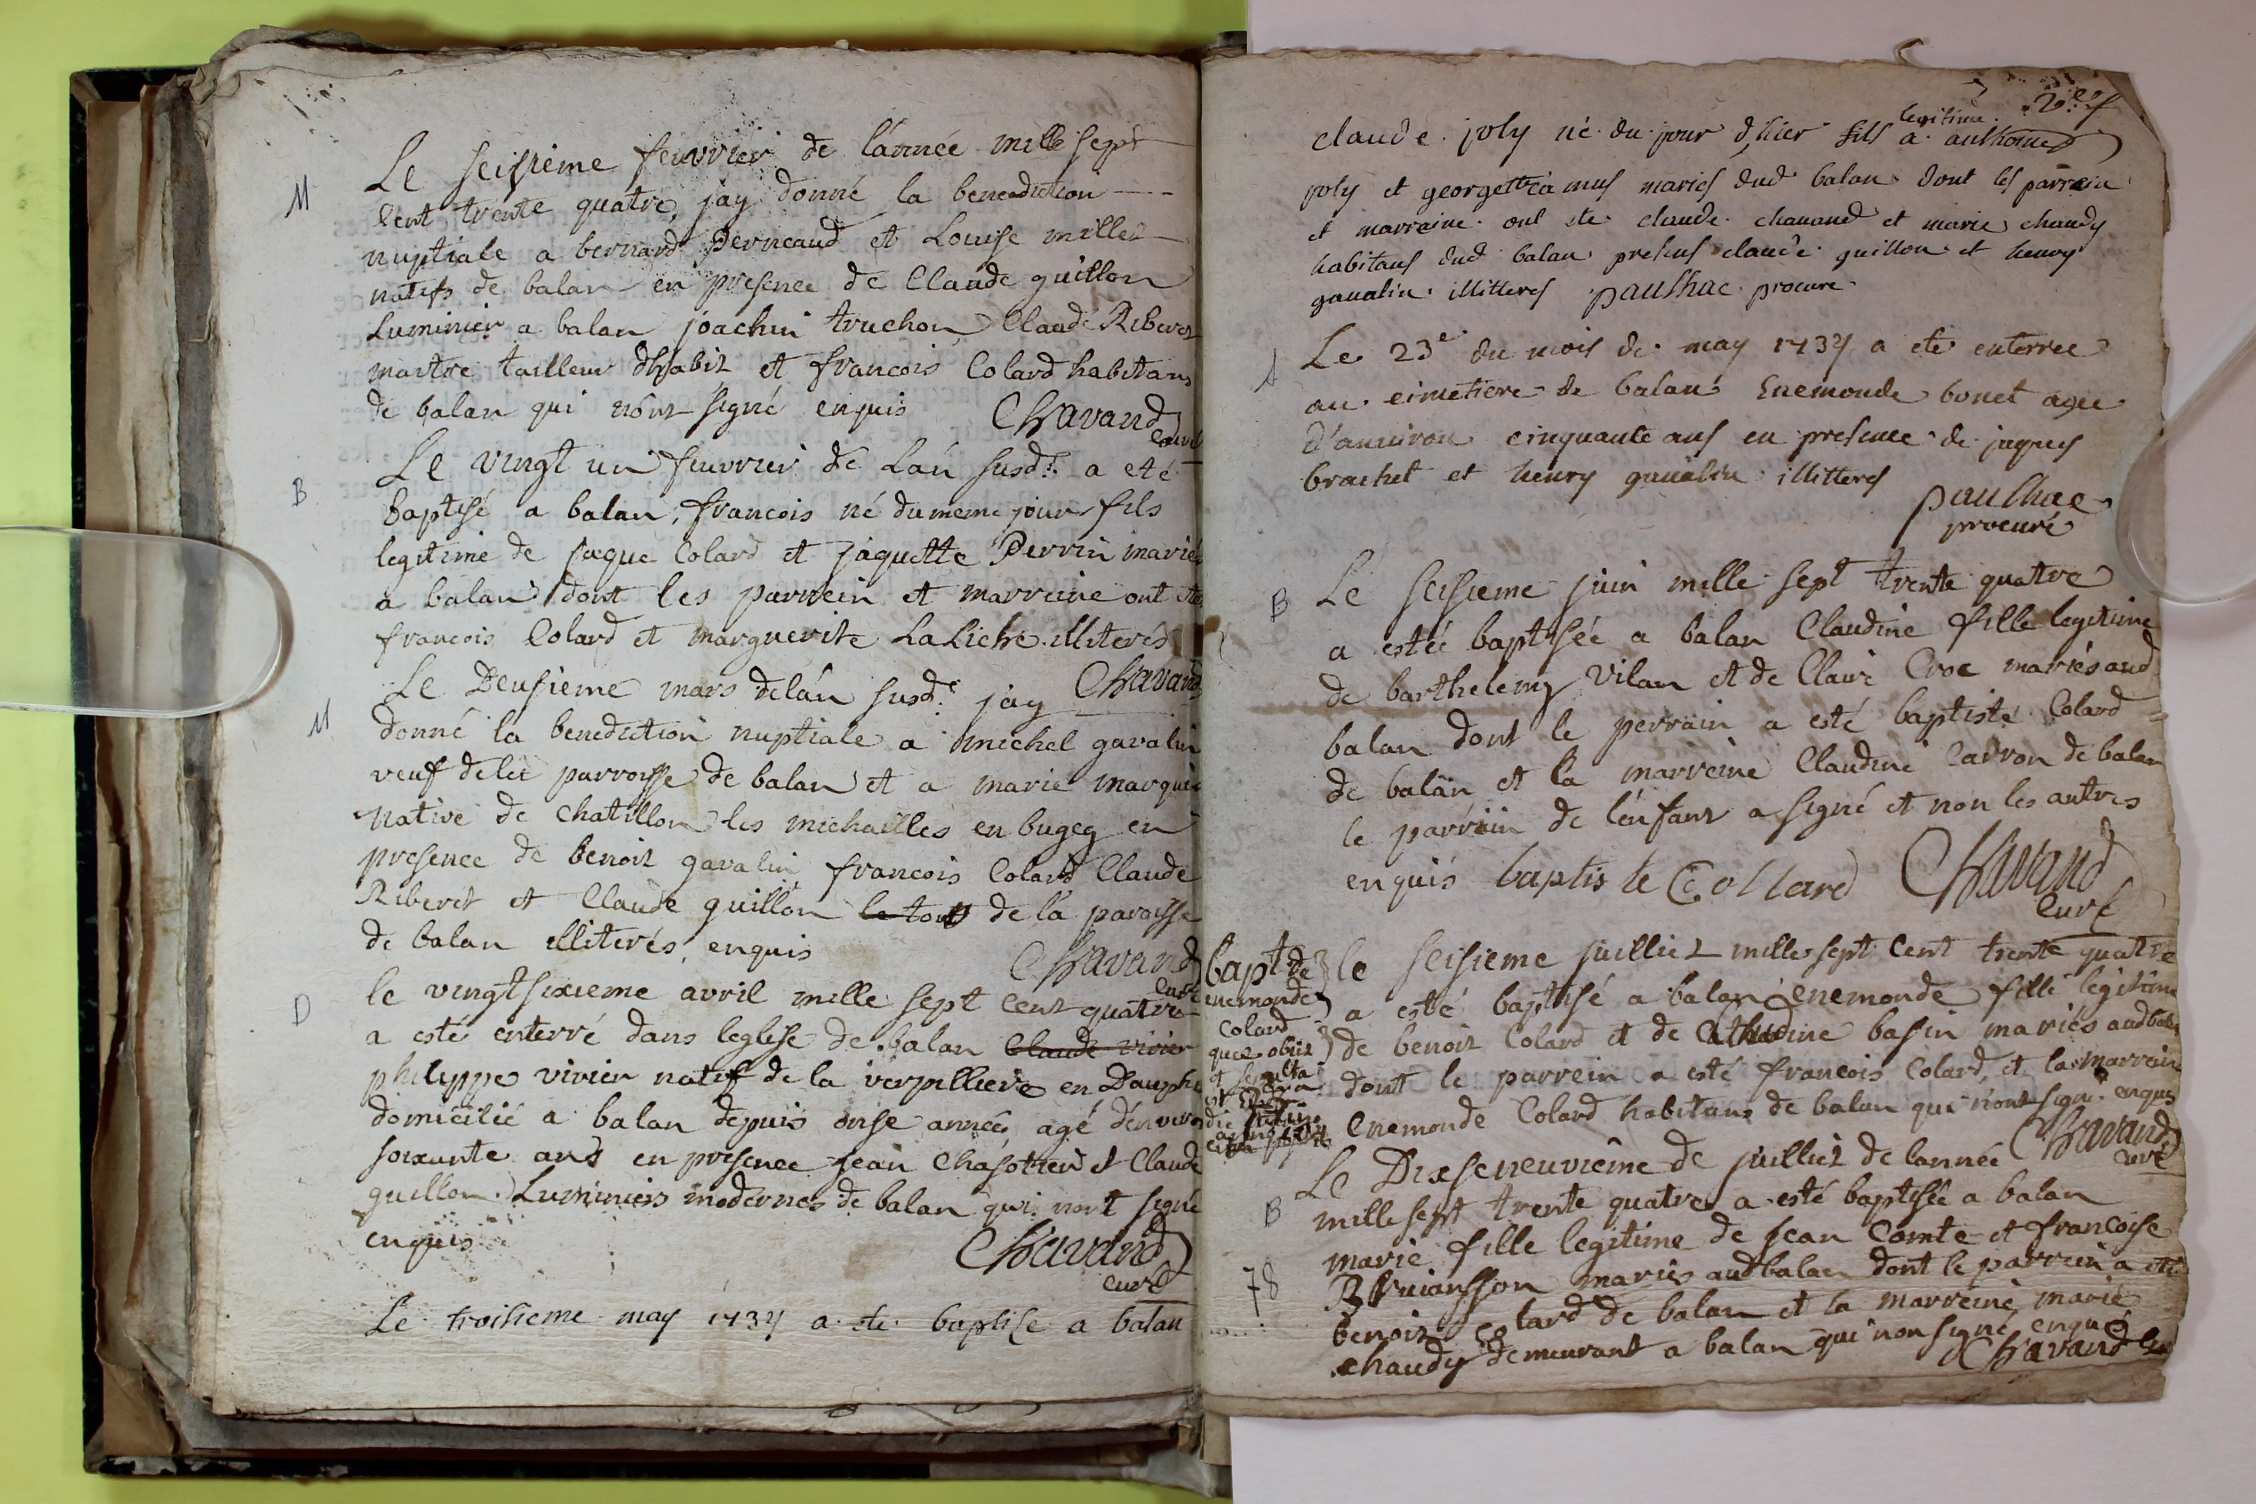 M
Le seisieme feuvrier de l'année mille sept
cent trente quatre, jay donné la benediction
nuptiale a bernard Perneaud et Louise millet
natifs de balan en presence de Claude guillon
Luminier a balan joachin truchon Claude Riberet
maitre tailleur dhabit et francois Colard habitans
de balan qui n'ont signé enquis Chavand
curé
B
Le vingt un feuvrier de Lan susd.t a eté
baptisé a balan, francois né du meme jour fils
legitime de jaque Colard et jaquette Perrin mariés
a balan dont les parrein et marreine ont ete
francois Colard et marguerite La Liche illiterés
Chavand
M
Le Deusieme mars delan susd.t jay
donné la benediction nuptiale a michel gavalin
veuf dela parroisse de balan et a marie marquin
native de Chatillon les michailles en bugey en
presence de benoit gavalin francois Colard Claude
Riberet et Claude guillon le tout de la paroisse
de balan illiterés, enquis Chavand
curé
D
le vingtsixieme avril mille sept cent quatre
a esté enterré dans leglise de balan Claude vivier
philippe vivier natif de la verpilliere en Dauphi
domicilié a balan depuis onse années agé d'environ
soixante ans en presence jean Chasottier et Claude
guillon Luminiers modernes de balan qui n'ont signé
enquis Chavand
curé
Le troisieme may 1734 a ete baptise a balan
legitime
claude joly né du jour d'hier fils a anthoine
joly et georgette camus mariés dud balan dont les parrein
et marraine ont ete claude chavand et marie chaudy
habitans dud balan presens claude guillon et henry
gavalin illitteres paulhac procuré
Le 23e du mois de may 1734 a ete enterree
au cimetiere de balan Enemonde bonet agee
d'anviron cinquante ans en presence de jaques
brachet et henry gavalin illitteres
paulhac
procuré
B
Le seisieme juin mille sept trente quatre
a estée baptisée a balan Claudine fille legitime
de barthelemy Vilan et de Claire Croc mariés aud
balan dont le perrain a esté baptiste Colard
de balan et la marreine Claudine Carron de balan
le parrain de l'enfant a signé et non les autres
enquis baptiste Collard Chavand
curé
bapt de
enemonde
Colard
quae obiit
et sepulta
le seisieme juilliet mille sept cent trente quatre
a esté baptisé a balan enemonde fille legitime
de benoit Colard et de Claudine basin mariés aud balan
dont le parrein a esté francois Colard, et la marrein
Enemonde Colard habitans de balan qui n'ont signé enquis
Chavand
curé
B
Le Dixseneuvième de juilliet de lannée
mille sept trente quatre a esté baptisée a balan
marie fille legitime de jean Comte et francoise
Bruiansson mariés aud balan dont le parrein a eté
benoit Colard de balan et la marreine marie
chaudy demeurant a balan qui non signé enquis
Chavand
78